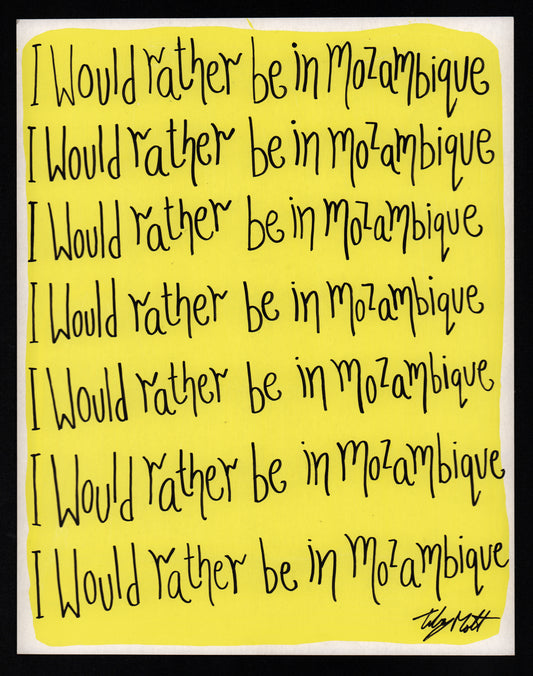 I Would rather be in Mozambique
I Would rather be in Mozambique
I Would rather be in Mozambique
I Would rather be in Mozambique
I Would rather be in Mozambique
I Would rather be in Mozambique
I Would rather be in Mozambique